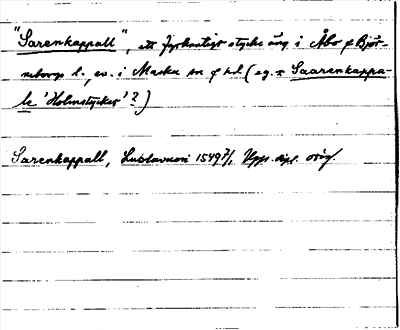 "Sarenkappall", ett fyrkantigt stycke äng i Åbo o Björ-
neborgs l., ev. i Masku sn o hd. (eg. = Saarenkappa-
le 'Holmstycket'?)
Sarenkappall, Lustavuori 1549 Upps. dipl. orig.